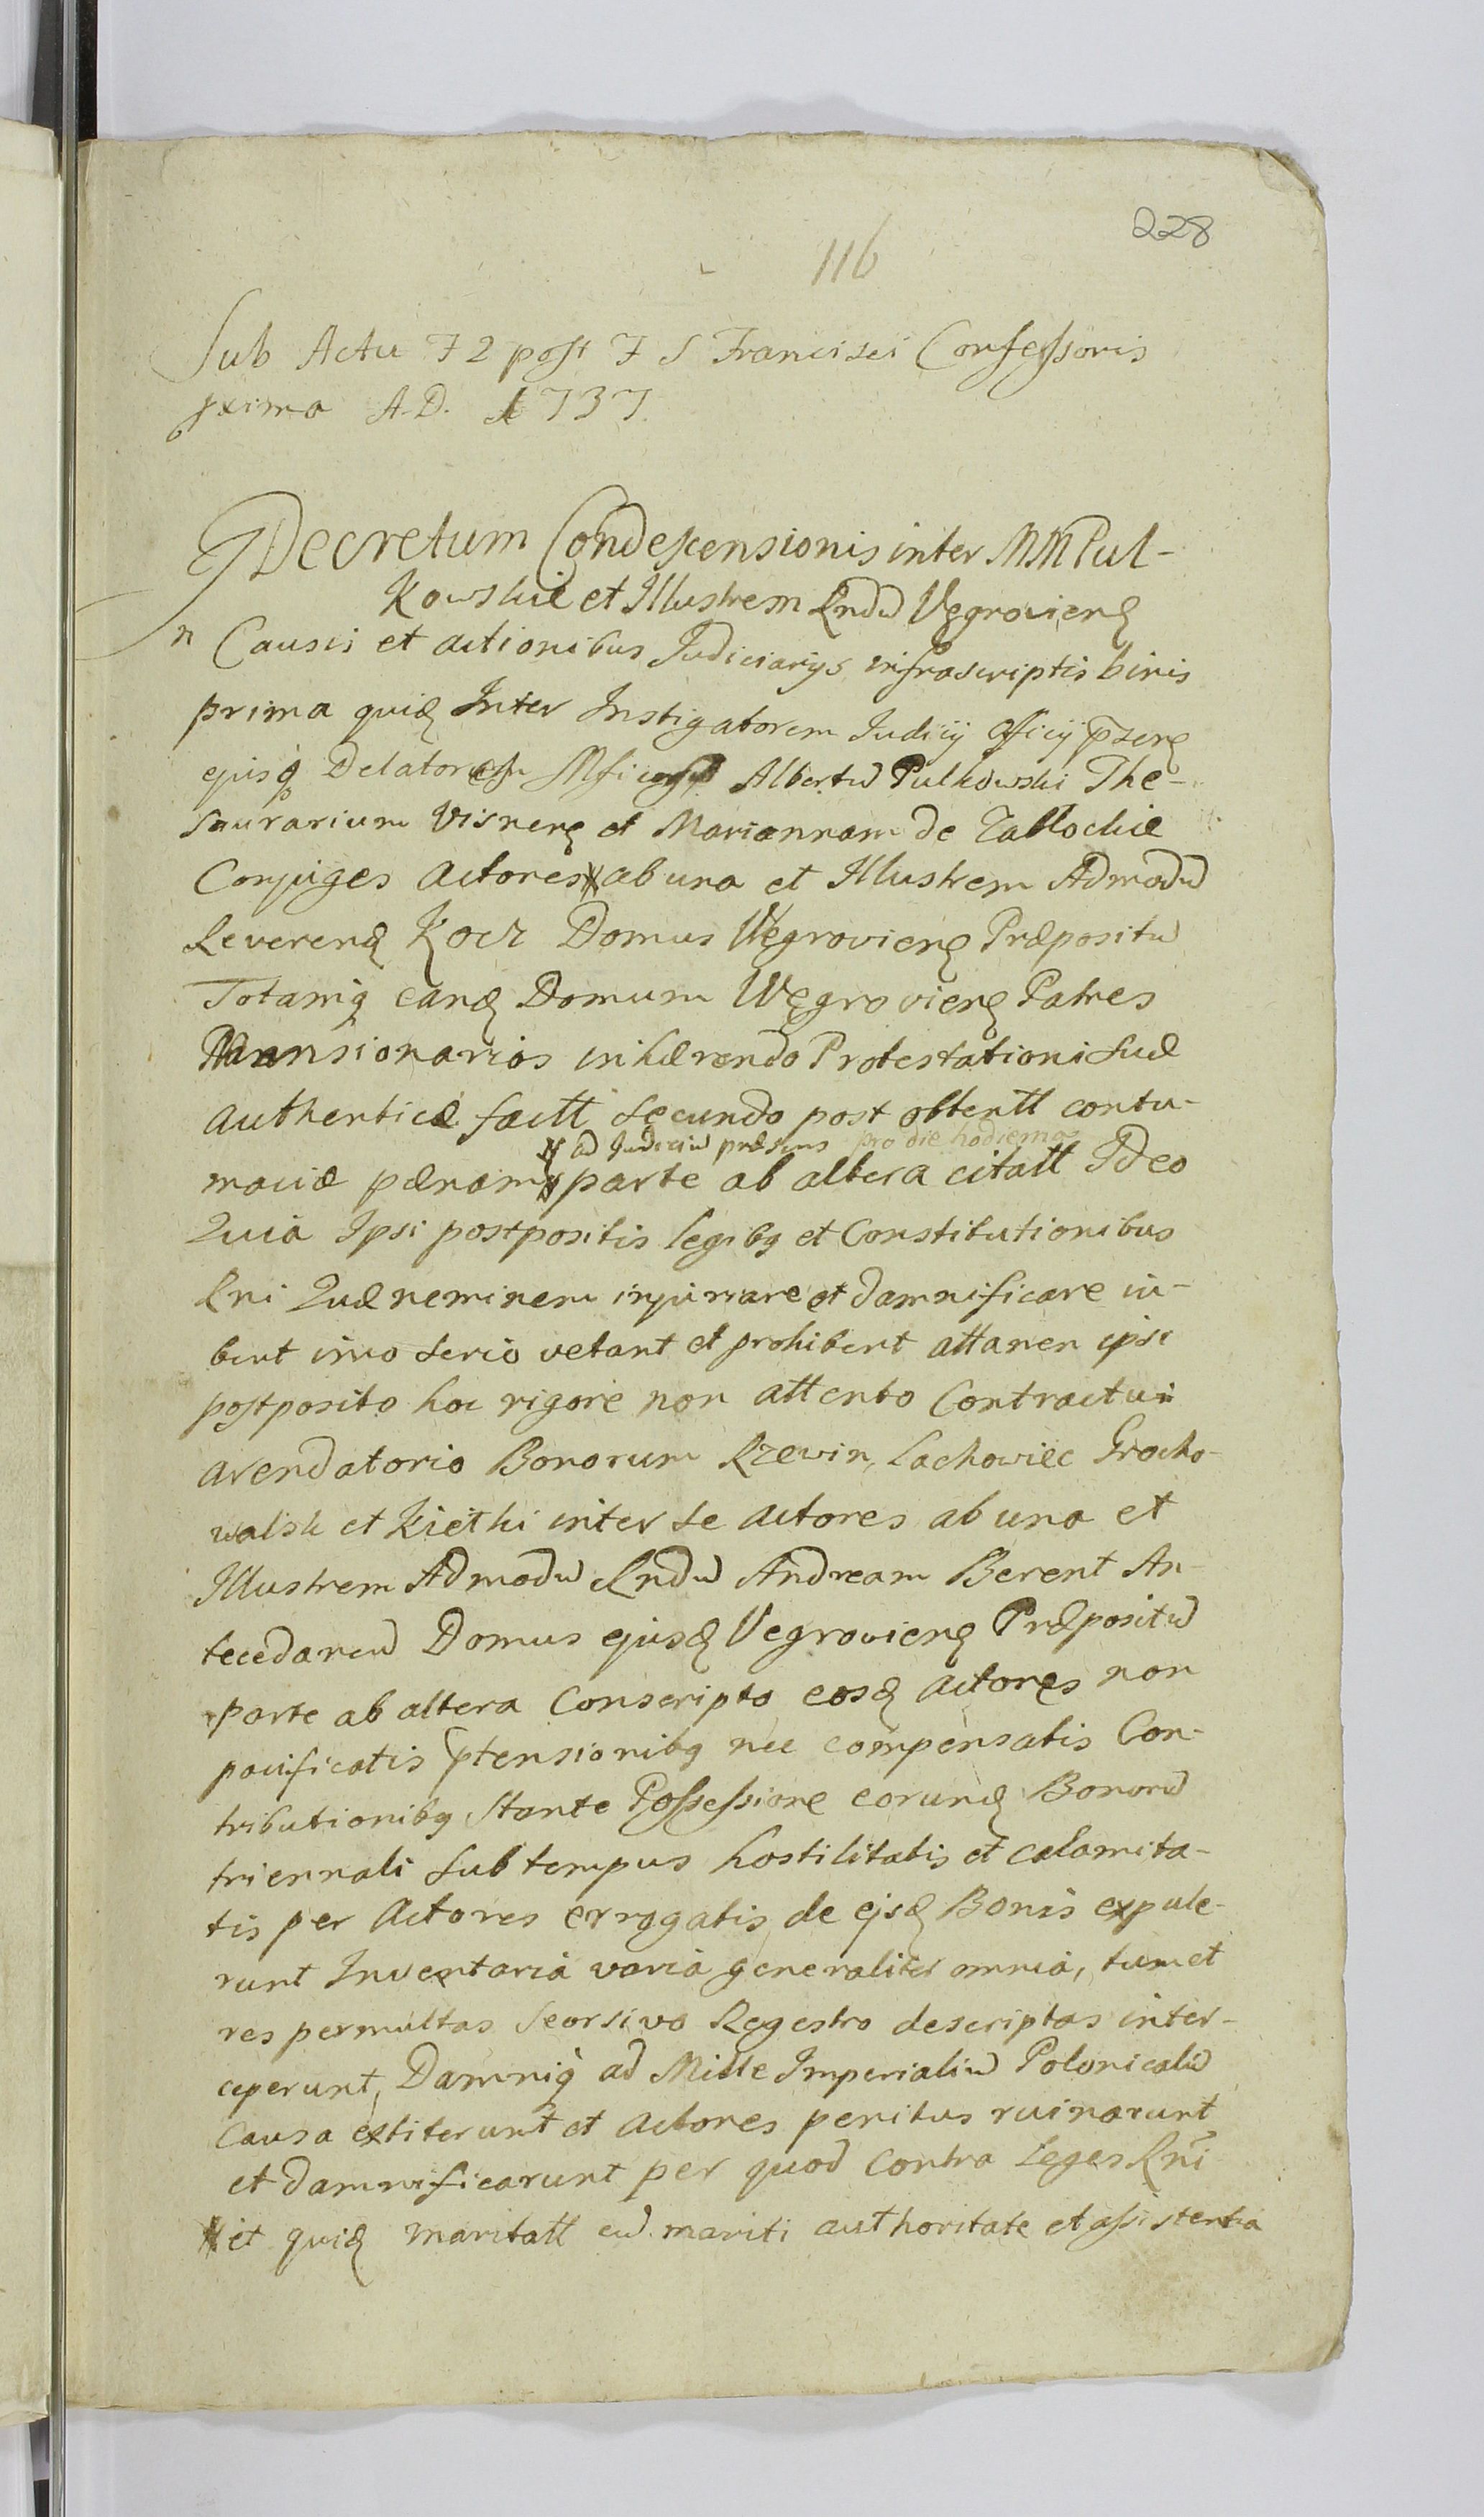 228
116
Sub Actu F 2 post F S Francisci Confessoris
pxima A.D. 1737.
Decretum Condescensionis inter MM Pul-
kowskie et Illustrem Rndu Vęgroviens
In Causis et actionibus Judiciarijs infrascriptis binis
prima quid Inter Instigatorem Judicij officij pzens
ejusq Delatorem Albertu Pulkowski The-
saurarium Visnens et Mariannam de
Conjuges Actores ab una et Illustrem Admodu
Reverend Kocz Domus Węgroviens Præpositu
Totamq eand Domum Węgroviens Patres
Mansionarios inhærendo Protestationi suæ
authenticæ factt secundo post obtentt contu-
ad Judiciu præsens pro die hodierna
maciæ pænam parte ab altera citatt Ideo
Quia Ipsi postpositis legibq et Constitutionibus
Rni Quæ neminem injuriare et damnificare iu-
bent imo serio vetant et prohibent attamen ipsi
postposito hoc rigore non attento Contractui
arendatorio Bonorum Rzewin, Lachowiec Grocho-
walsk et Kiethi inter se actores ab una et
Illustrem Admodu Rndu Andream Berent An-
tecedaneu Domus ejusd Vegroviens Præpositu
parte ab altera Conscripto eosd actores non
pacificatis ptensionibq nec compensatis Con-
tributionibq Stante Possessione eorund Bonoru
triennali sub tempus hostilitatis et calamita-
tis per Actores errogatis de ejsd Bonis expule-
runt Inventaria varia generaliter omnia, tum et
res permultas Seorsivo Regestro descriptas inter-
ceperunt, Damniq ad Mille Imperialiu Polonicaliu
Causa extiterunt et actores penitus ruinarunt
et damnificarunt per quod contra Leges Rni
et quid maritatt cu mariti authoritate et assistentia